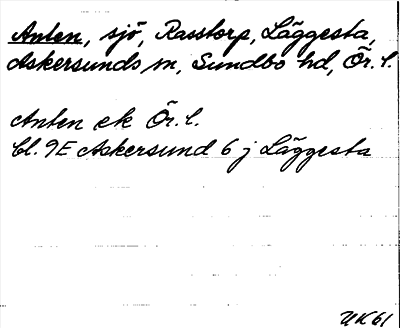 Anten, sjö, Rasstorp, Läggesta,
Askersunds sn, Sundbo hd, Ör. l.
Anten ek Ör. l.
bl. 9E Askersund 6 j Läggesta
UK61